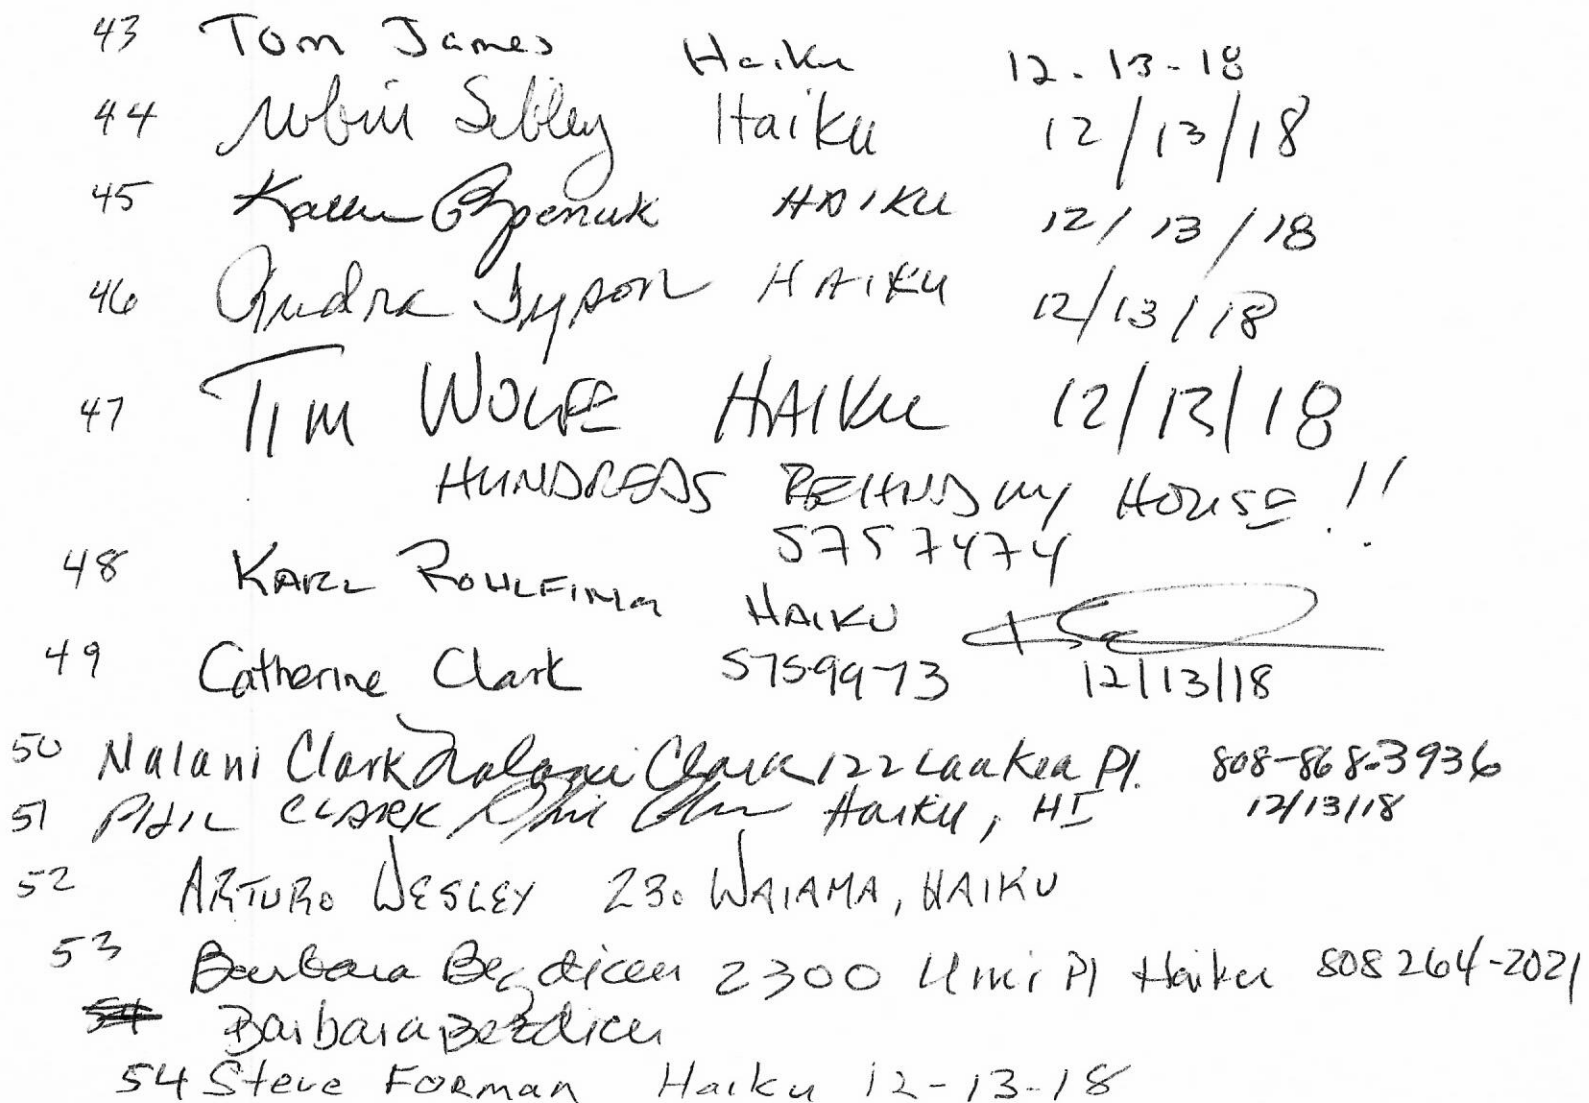 43 Tom James Haiku 12-13-18
44 Robin Sibley Haiku 12/13/18
45 HAIKU 12/13/18
46 Tyson HAIKU 12/13/18
47 TIM WOLFE HAIKU 12/13/18
HUNDREDS BEHIND my HOUSE !!
5757474
48 KARL HAIKU
49 Catherine Clark 5759973 12/13/18
50 Nalani Clark Nalani Clark 122 Laakea Pl. 808-868-3936
51 PHIL CLARK Phil Clark Haiku, HI 12/13/18
52 ARTURO WESLEY 230 WAIAMA, HAIKU
53 Barbara Bezdicek 2300 Umi Pl Haiku 808 264-2021
54 Barbara Bezdicek
54 Steve Forman Haiku 12-13-18